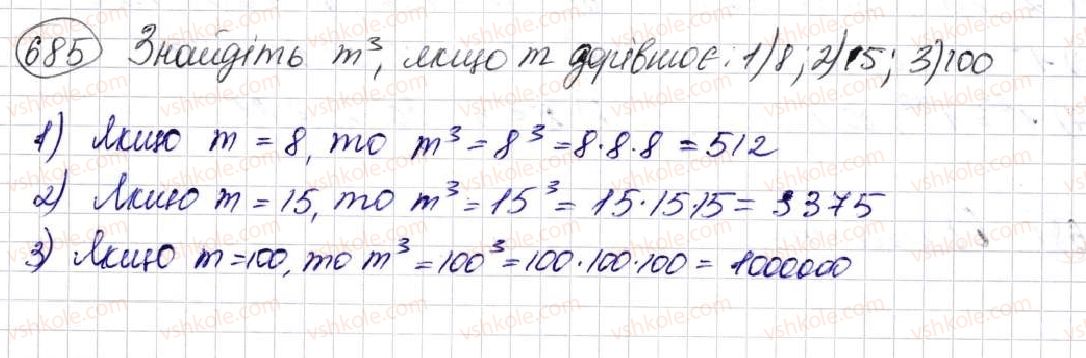 685 Знайдіть m³, якщо m дорівнює: 1) 8; 2) 15; 3) 100
1) Якщо m = 8, то m³ = 8³ = 8·8·8 = 512
2) Якщо m = 15, то m³ = 15³ = 15·15·15 = 3375
3) Якщо m = 100, то m³ = 100³ = 100·100·100 = 1000000